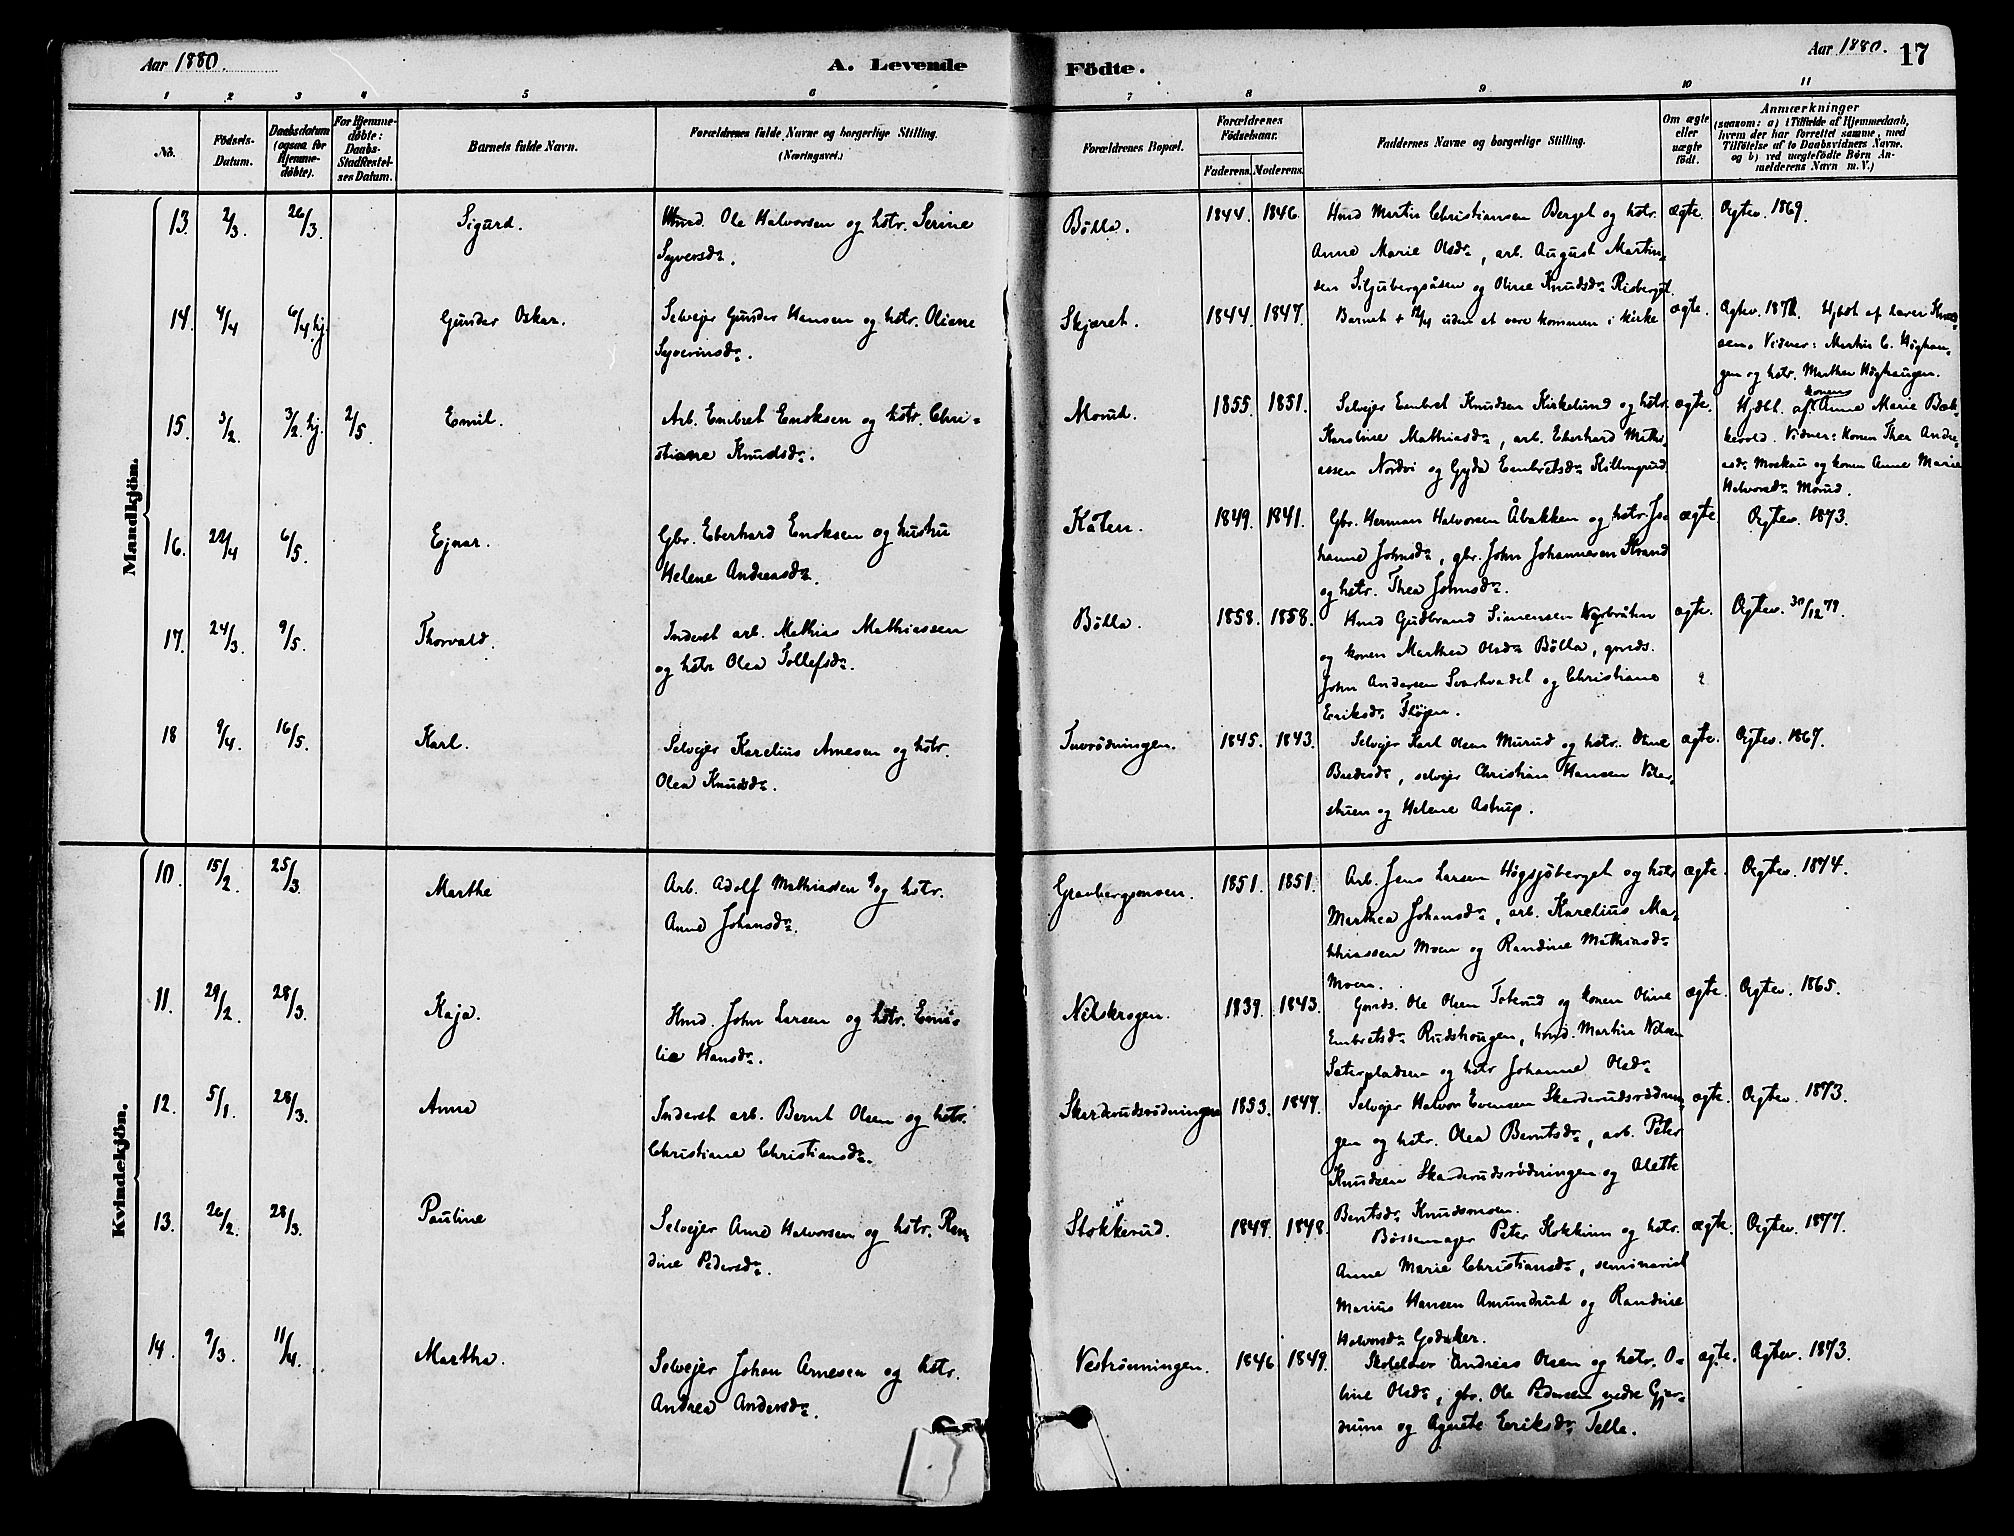 Aar 1880.
A. Levende Födte.
Aar 1880. 17
1 2 3 4 5 6 7 8 9 10 11
No.
Födsels-Datum.
Daabsdatum (ogsaa for Hjemme-döbte).
For Hjemme-döbte: Daabs-Stadfæstel-ses Datum.
Barnets fulde Navn.
Forældrenes fulde Navne og borgerlige Stilling. (Næringsvei.)
Forældrenes Bopæl.
Forældrenes Födselsaar.
Faderens. Moderens.
Faddernes Navne og borgerlige Stilling.
Om ægte eller uægte födt.
Anmærkninger
(saasom: a) i Tilfælde af Hjemmedaab, hvem der har forrettet samme, med Tilföielse af to Daabsvidners Navne. og b) ved uægtefödte Börn An-melderens Navn m.V.)
Mandkjön.
13. 2/3. 26/3. Sigurd. Hmd. Ole Halvorsen og hstr. Serine
Syversdr. Bölla. 1844. 1846. Hmd Martin Christiansen Berget og hstr. ægte. Ægtev. 1869.
Anne Marie Olsdr, arb. August Martin-
sen Siljubergsåsen og Oline Knudsdr Risberget.
14. 4/4 6/4 hj. Gunder Oskar. Selvejer Gunder Hansen og hstr. Oliane
Syverinsdr. Skjæret. 1844. 1847. Barnet + 12/4 uden at være kommen i kirke ægte. Ægtev. 1871. Hjdbt af lærer Knud-
sen. Vidner: Martin C. Höghau-
gen og hstr. Marthea Höghaugen.
15. 3/2. 3/2. hj. 2/5 Emil. Arb. Embret Enoksen og hstr. Chri-
stiane Knudsdr. Morud. 1855. 1851. Selvejer Embret Knudsen Kirkelund og hstr. ægte. Hjdbt. af konen Anne Marie Bæk-
Karoline Mathiasdr, arb. Eberhard Mathi- kevold. Vidner: konen Thea Andre-
assen Nordvi og Gyda Embretsdr Killingrud asdr Moskau og konen Anne Marie
Halvorsdr Morud.
16. 22/4 6/5. Ejnar. Gbr. Eberhard Enoksen og hustru
Helene Andreasdr. Kåten. 1849. 1841. Gbr. Herman Halvorsen Åbakken og hstr. Jo- ægte Ægtev. 1873.
hanne Johnsdr, gbr. John Johannesen Strand
og hstr. Thea Johnsdr.
17. 24/3. 9/5. Thorvald. Inderst arb. Mathias Mathiassen
og hstr Olea Tollefsdr. Bölla. 1858. 1858. Hmd Gudbrand Simensen Nybråten ægte. Ægtev. 31/12 79.
og konen Marthea Olsdr Bölla, gmds.
John Andersen Svartvadet og Christiane
Eriksdr Flöjen.
18 9/4. 16/5. Karl. Selvejer Karelius Arnesen og hstr.
Olea Knudsdr. Tuvrödningen. 1845. 1843. Selvejer Karl Olsen Murud og hstr. Oline ægte. Ægtev. 1867.
Bredesdr, selvejer Christian Hansen Veter-
stuen og Helene Astrup.
Kvindekjön.
10. 15/2. 25/3. Marthe Arb. Adolf Mathiassen og hstr.
Anne Johansdr. Gravbergsmoen. 1851. 1851. Arb. Jens Larsen Högsjöberget og hstr ægte. Ægtev. 1874.
Marthea Johansdr, arb. Karelius Ma-
thiassen Moen og Randine Mathiasdr
Moen.
11. 29/2. 28/3. Kaja. Hmd. John Larsen og hstr. Emi-
lie Hansdr. Nilskrogen. 1839. 1843. Gmds. Ole Olsen Tokrud og konen Oline ægte. Ægtev. 1865.
Embretsdr Rudshaugen, hmd. Martin Nilsen
Sæterpladsen og hstr Johanne Olsdr
12. 5/1. 28/3. Anna Inderst arb. Bernt Olsen og hstr.
Christiane Christiansdr. Skarderudsrödningen 1853. 1847. Selvejer Halvor Evensen Skarderudsrödnin- ægte. Ægtev. 1873.
gen og hstr. Olea Berntsdr, arb. Peter
Knudsen Skarderudsrödningen og Alette
Berntsdr Knudsmoen.
13. 26/2. 28/3. Pauline Selvejer Arne Halvorsen og hstr. Ran-
dine Pedersdr. Stokkerud. 1847. 1848. Bössemager Peter Kokkinn og hstr. ægte. Ægtev. 1877.
Anne Marie Christiansdr, seminarist
Marius Hansen Amundrud og Randine
Halvorsdr Godaker.
14. 9/3. 11/4. Martha. Selvejer Johan Arnesen og hstr.
Andrea Andersdr. Veströnningen. 1846 1849. Skolelærer Andreas Olsen og hstr. O- ægte. Ægtev. 1873.
line Olsdr, gbr. Ole Pedersen nedre Gjer-
drum og Agnete Eriksdr Telle.